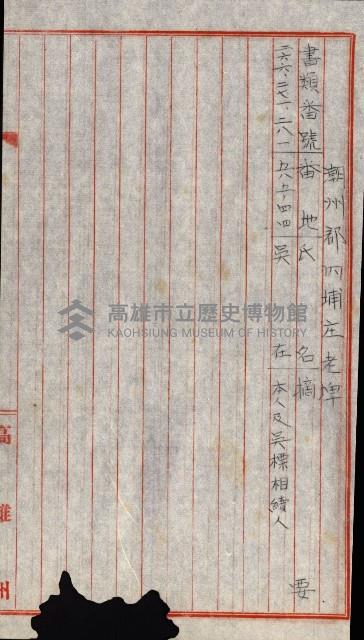 潮州郡内埔庄老埤
書類番號 番地 氏名 摘要
二六六、二七一、二八一 五八五ノ四四 吳在 本人及吳標相續人
高雄州
高雄市立歷史博物館
KAOHSIUNG MUSEUM OF HISTORY